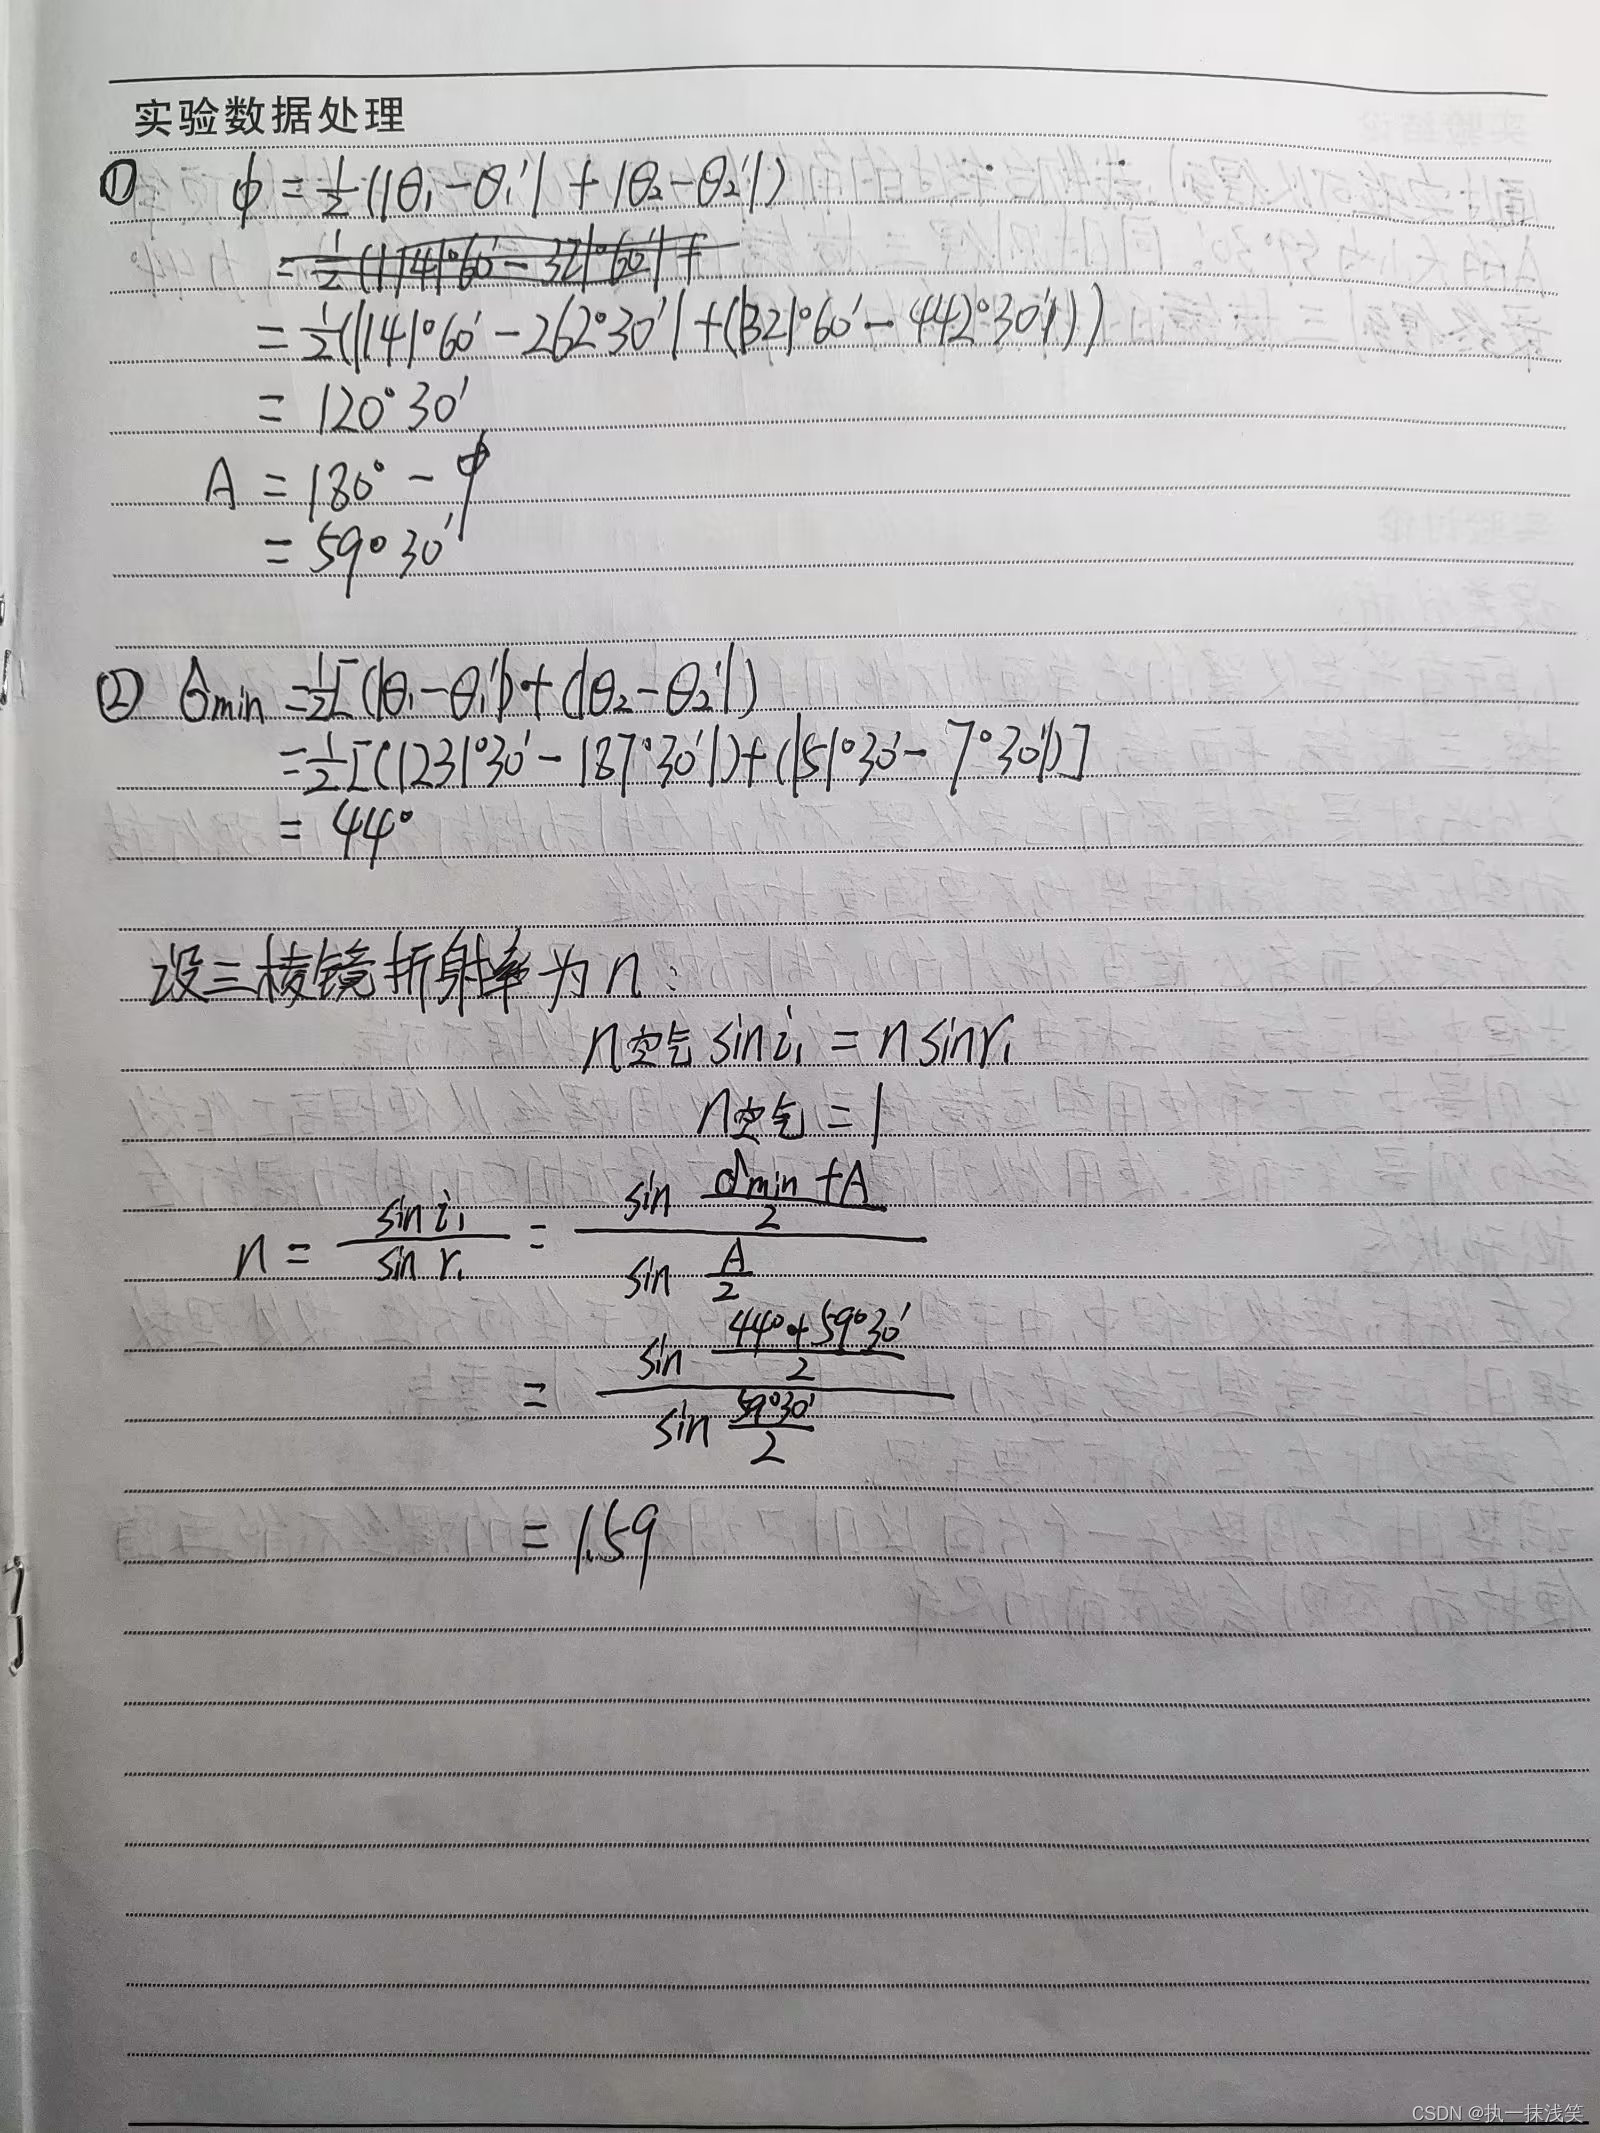 实验数据处理
① φ = 1/2 (|θ₁ - θ₁'| + |θ₂ - θ₂'|)
= 1/2 (|141°60' - 321°60'| +
= 1/2 (|141°60' - 262°30'| + (|321°60' - 442°30'|))
= 120°30'
A = 180° - φ
= 59°30'
② δmin = 1/2 [(|θ₁ - θ₁'|) + (|θ₂ - θ₂'|)
= 1/2 [(|231°30' - 187°30'|) + (|51°30' - 7°30'|)]
= 44°
设三棱镜折射率为n:
n空气 sin i₁ = n sin r₁
n空气 = 1
n = sin i₁ / sin r₁ = sin (δmin + A)/2 / sin A/2
= sin (44° + 59°30')/2 / sin 59°30'/2
= 1.59
CSDN @执一抹浅笑